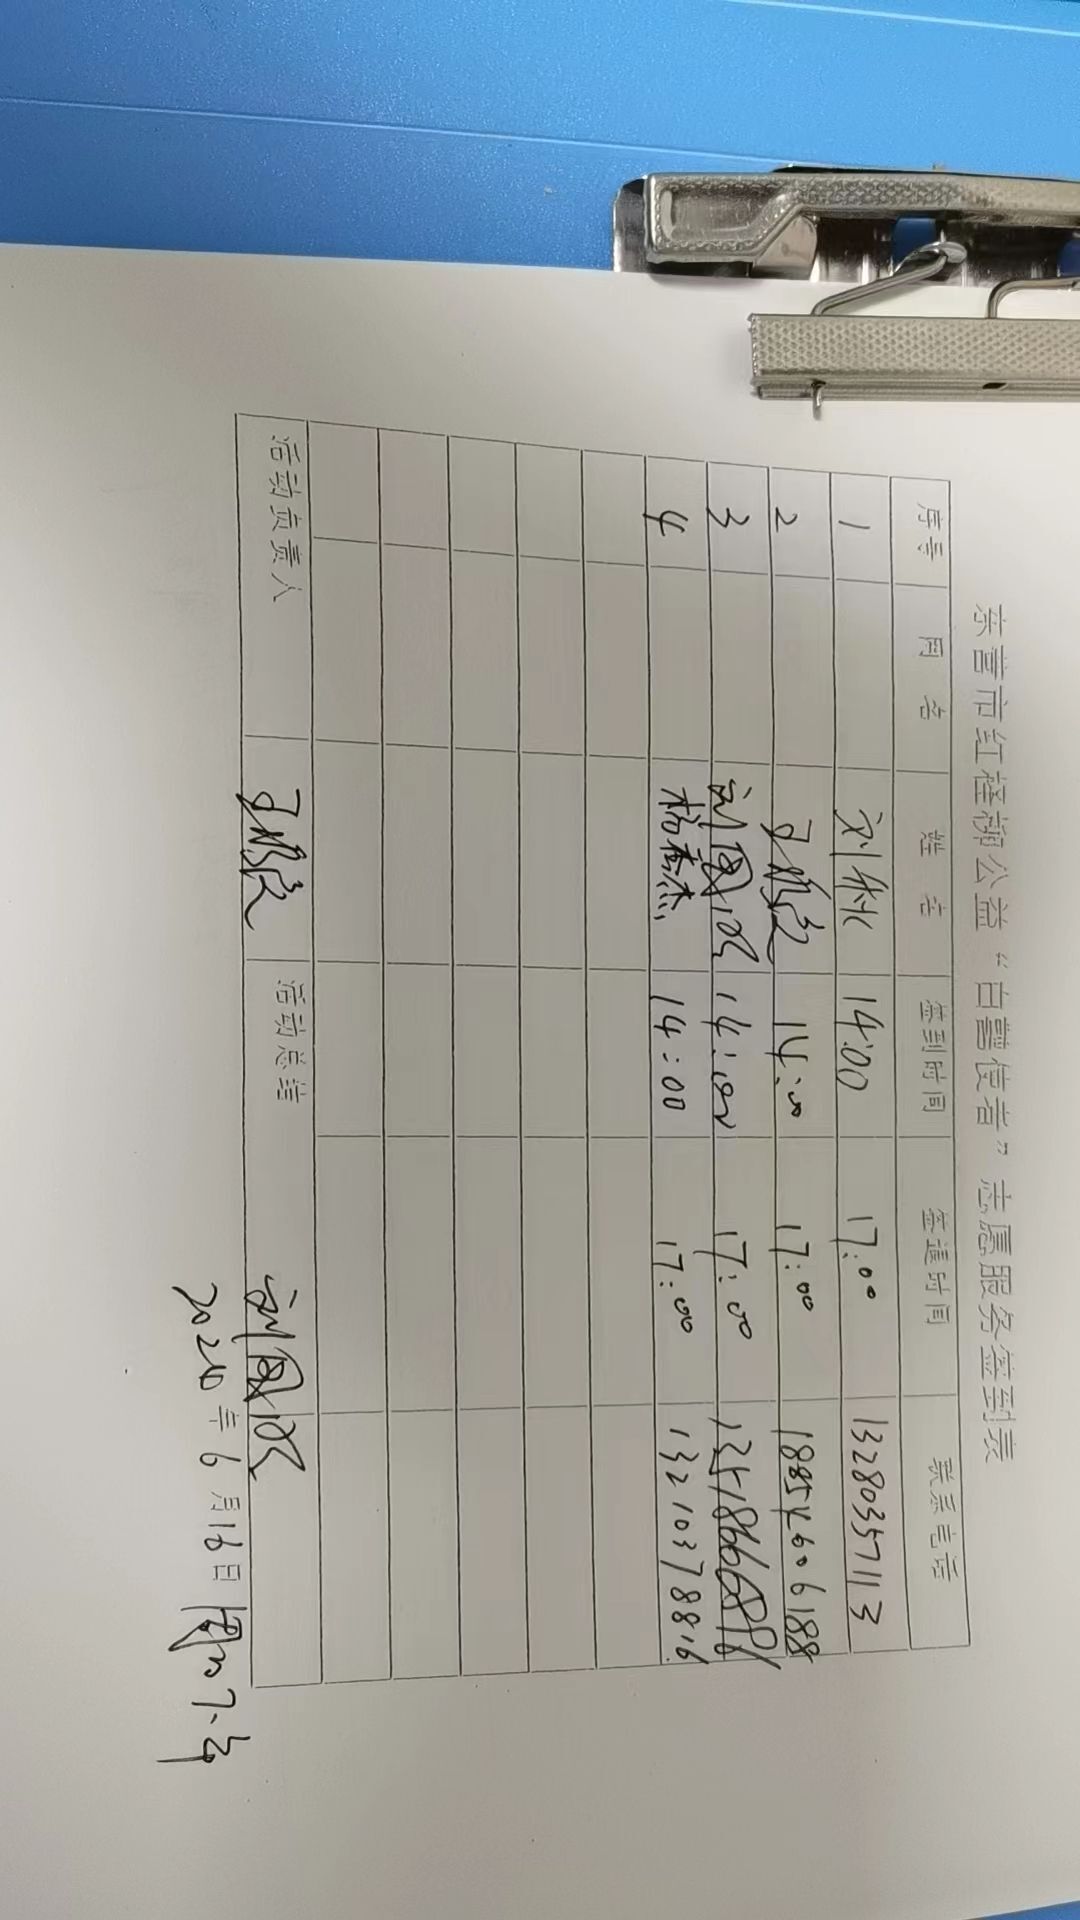 东营市红柽柳公益“白鹭使者”志愿服务签到表
序号 网名 姓名 签到时间 签退时间 联系电话
1 刘彬 14:00 17:00 13280357113
2 14:00 17:00 18854606188
3 刘国 14:00 17:00
4 杨杰 14:00 17:00 13210378816
活动负责人 活动总监 刘国
2024年6月16日 周日 下午